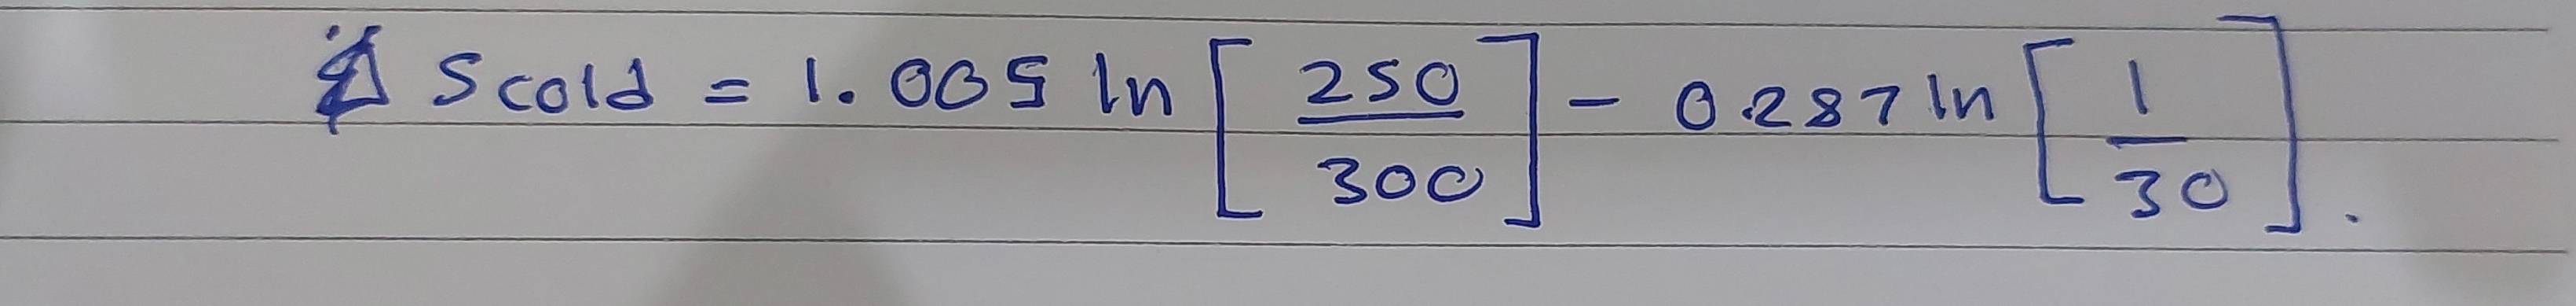 Δ Scold = 1.005 ln [ 250 / 300 ] - 0.287 ln [ 1 / 30 ].